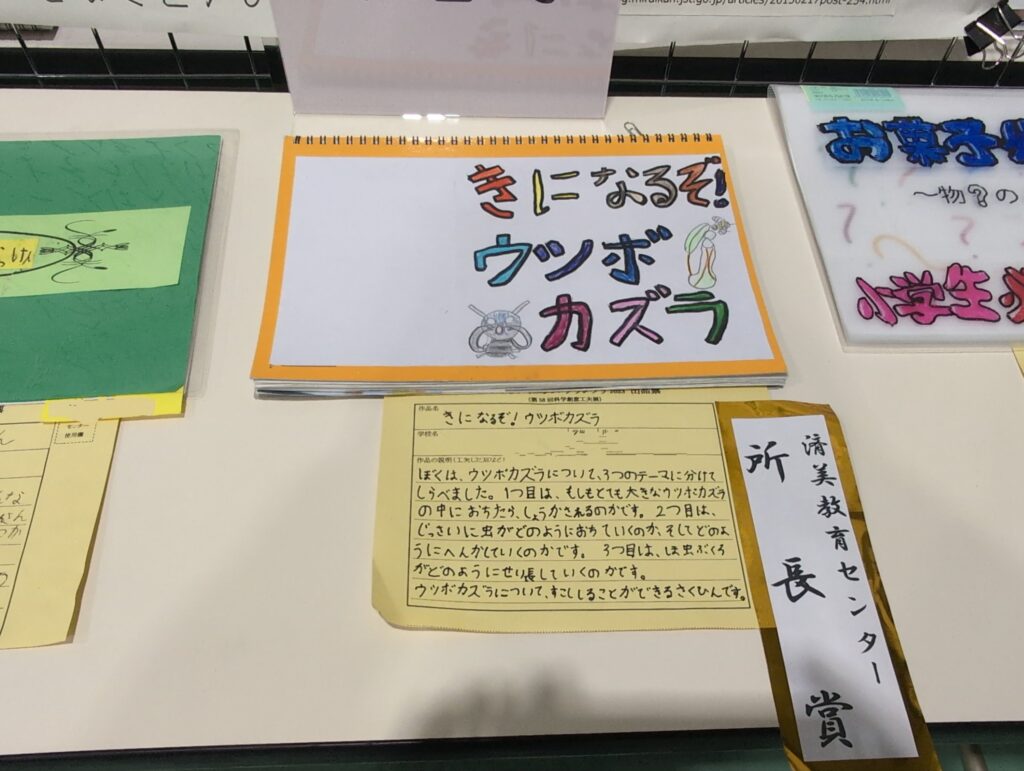 g.miraikan.jst.go.jp/articles/20150217post-254.html
きになるぞ!
ウツボ
カズラ
お菓子
〜物?の
小学生
(第58回科学創意工夫展)
作品名
きになるぞ!ウツボカズラ
学校名
作品の説明(工夫した点など)
ぼくは、ウツボカズラについて、3つのテーマに分けて
しらべました。1つ目は、もしもとても大きなウツボカズラ
の中におちたら、しょうかされるのかです。2つ目は、
じっさいに虫がどのようにおちていくのか、そしてどのよ
うにへんかしていくのかです。3つ目は、ほ虫ぶくろ
がどのようにせい長していくのかです。
ウツボカズラについて、すこししることができるさくひんです。
済美教育センター
所長賞
センター
使用欄